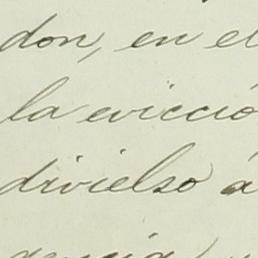 don, en el
la evicció
divielso á
gencia, y